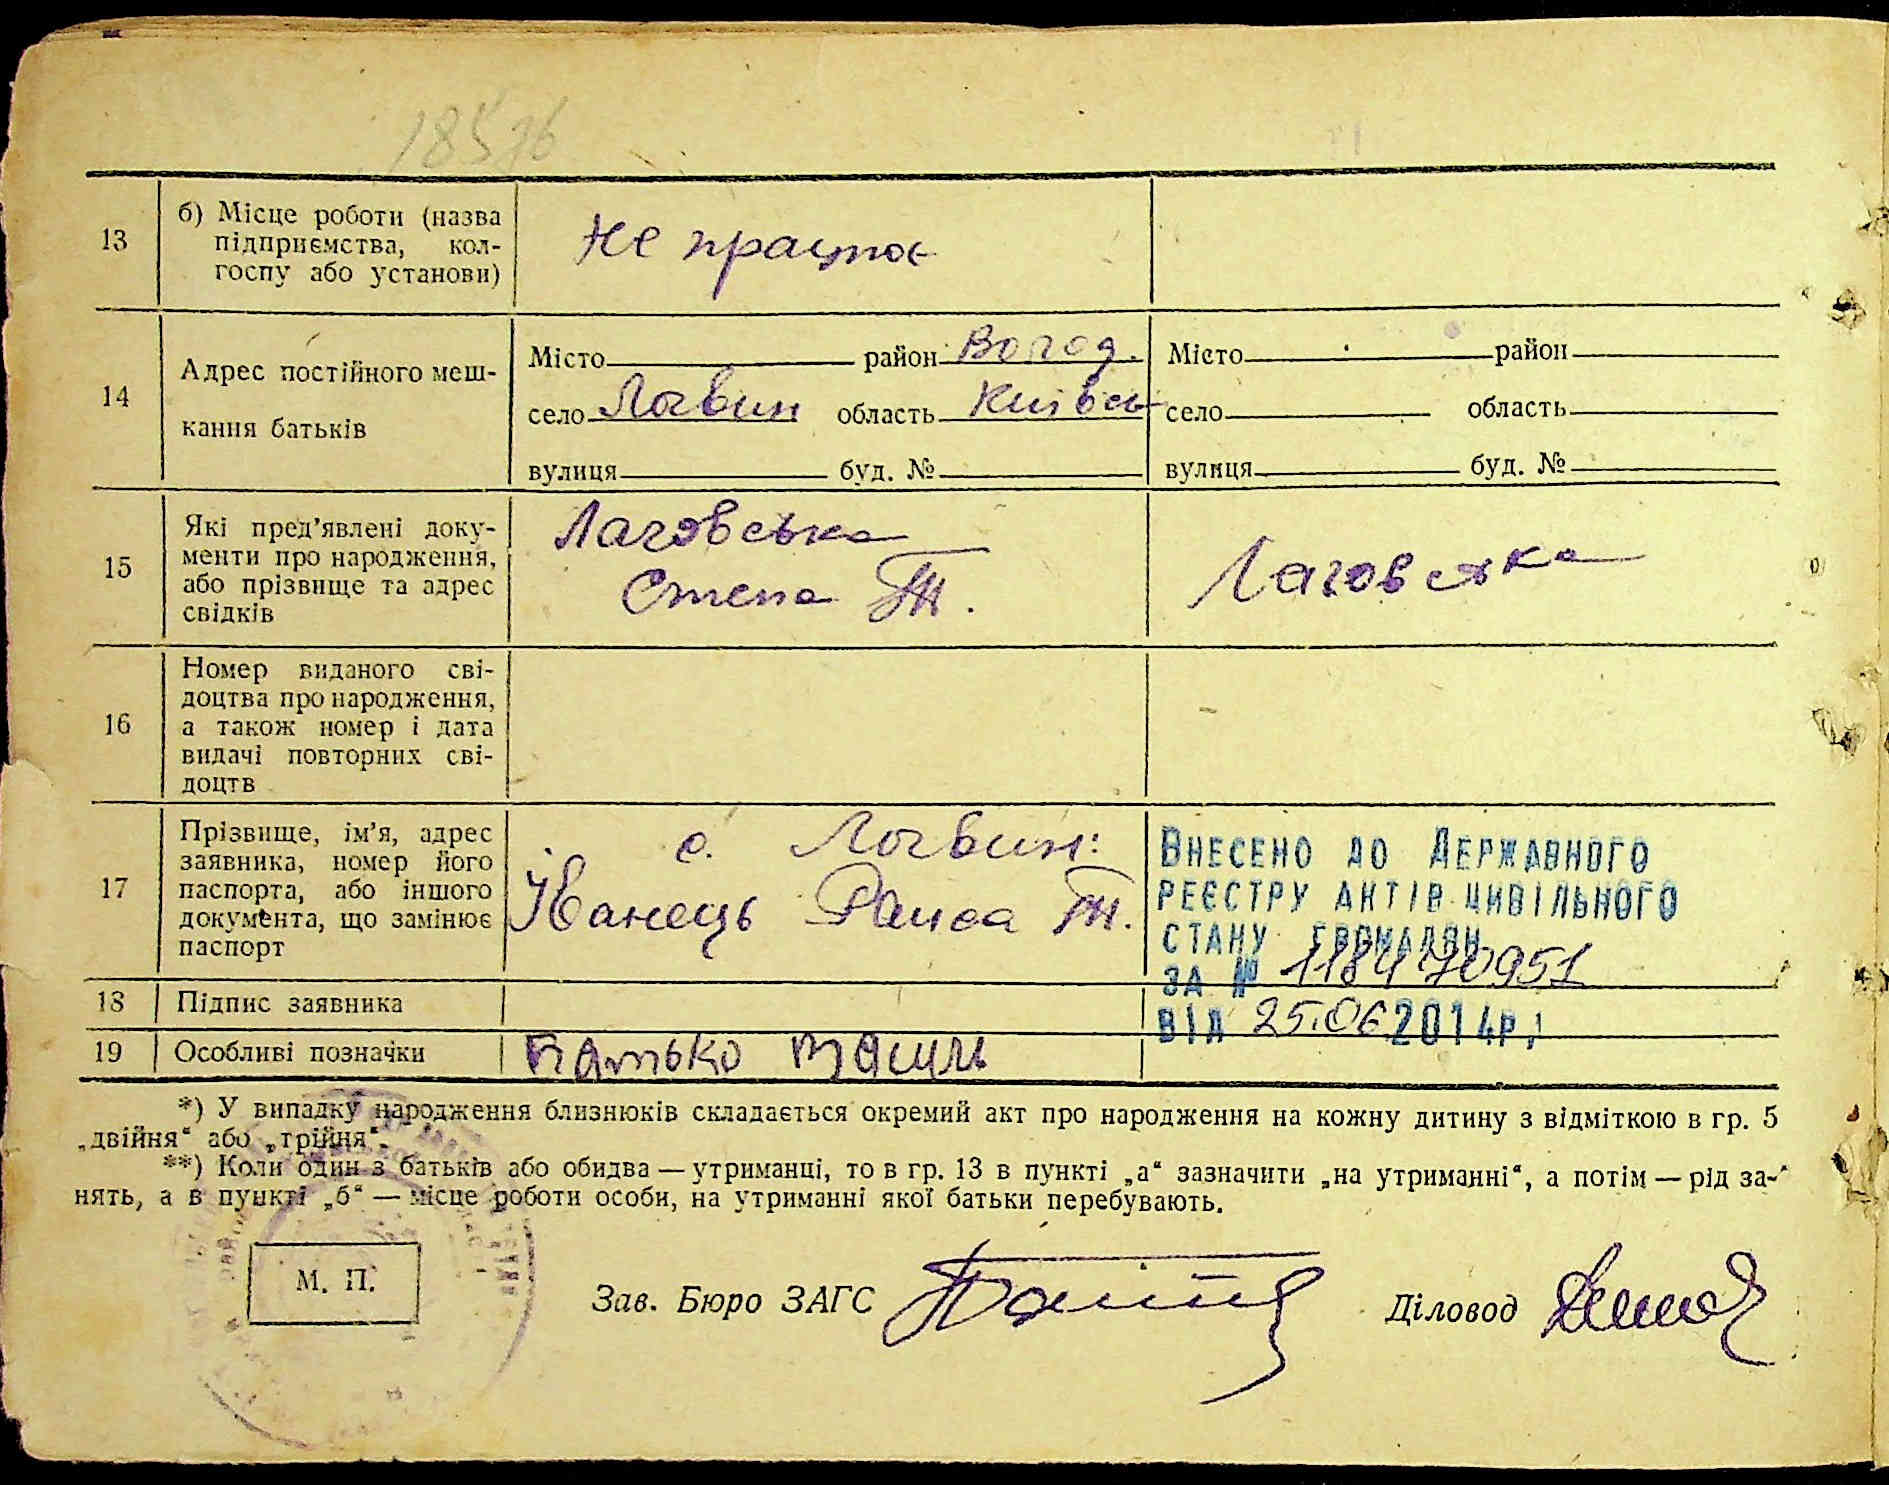 18576
13
б) Місце роботи (назва
підприємства, кол-
госпу або установи)
не працює
14
Адрес постійного меш-
кання батьків
Місто район Волод.
село Логвин область Київсь
вулиця буд. №
Місто район
село область
вулиця буд. №
15
Які пред'явлені доку-
менти про народження,
або прізвище та адрес
свідків
Лаговська
Степа Т.
Лаговська
16
Номер виданого сві-
доцтва про народження,
а також номер і дата
видачі повторних сві-
доцтв
17
Прізвище, ім'я, адрес
заявника, номер його
паспорта, або іншого
документа, що замінює
паспорт
с. Логвин:
Іванець Раиса Т.
Внесено до Державного
реєстру актів цивільного
стану громадян
за № 1184 70951
від 25.06 2014р.
18 Підпис заявника
19 Особливі позначки
Батько Василь
*) У випадку народження близнюків складається окремий акт про народження на кожну дитину з відміткою в гр. 5
„двійня“ або „трійня“.
**) Коли один з батьків або обидва — утриманці, то в гр. 13 в пункті „а“ зазначити „на утриманні“, а потім — рід за-
нять, а в пункті „б“ — місце роботи особи, на утриманні якої батьки перебувають.
М. П.
Зав. Бюро ЗАГС
Діловод